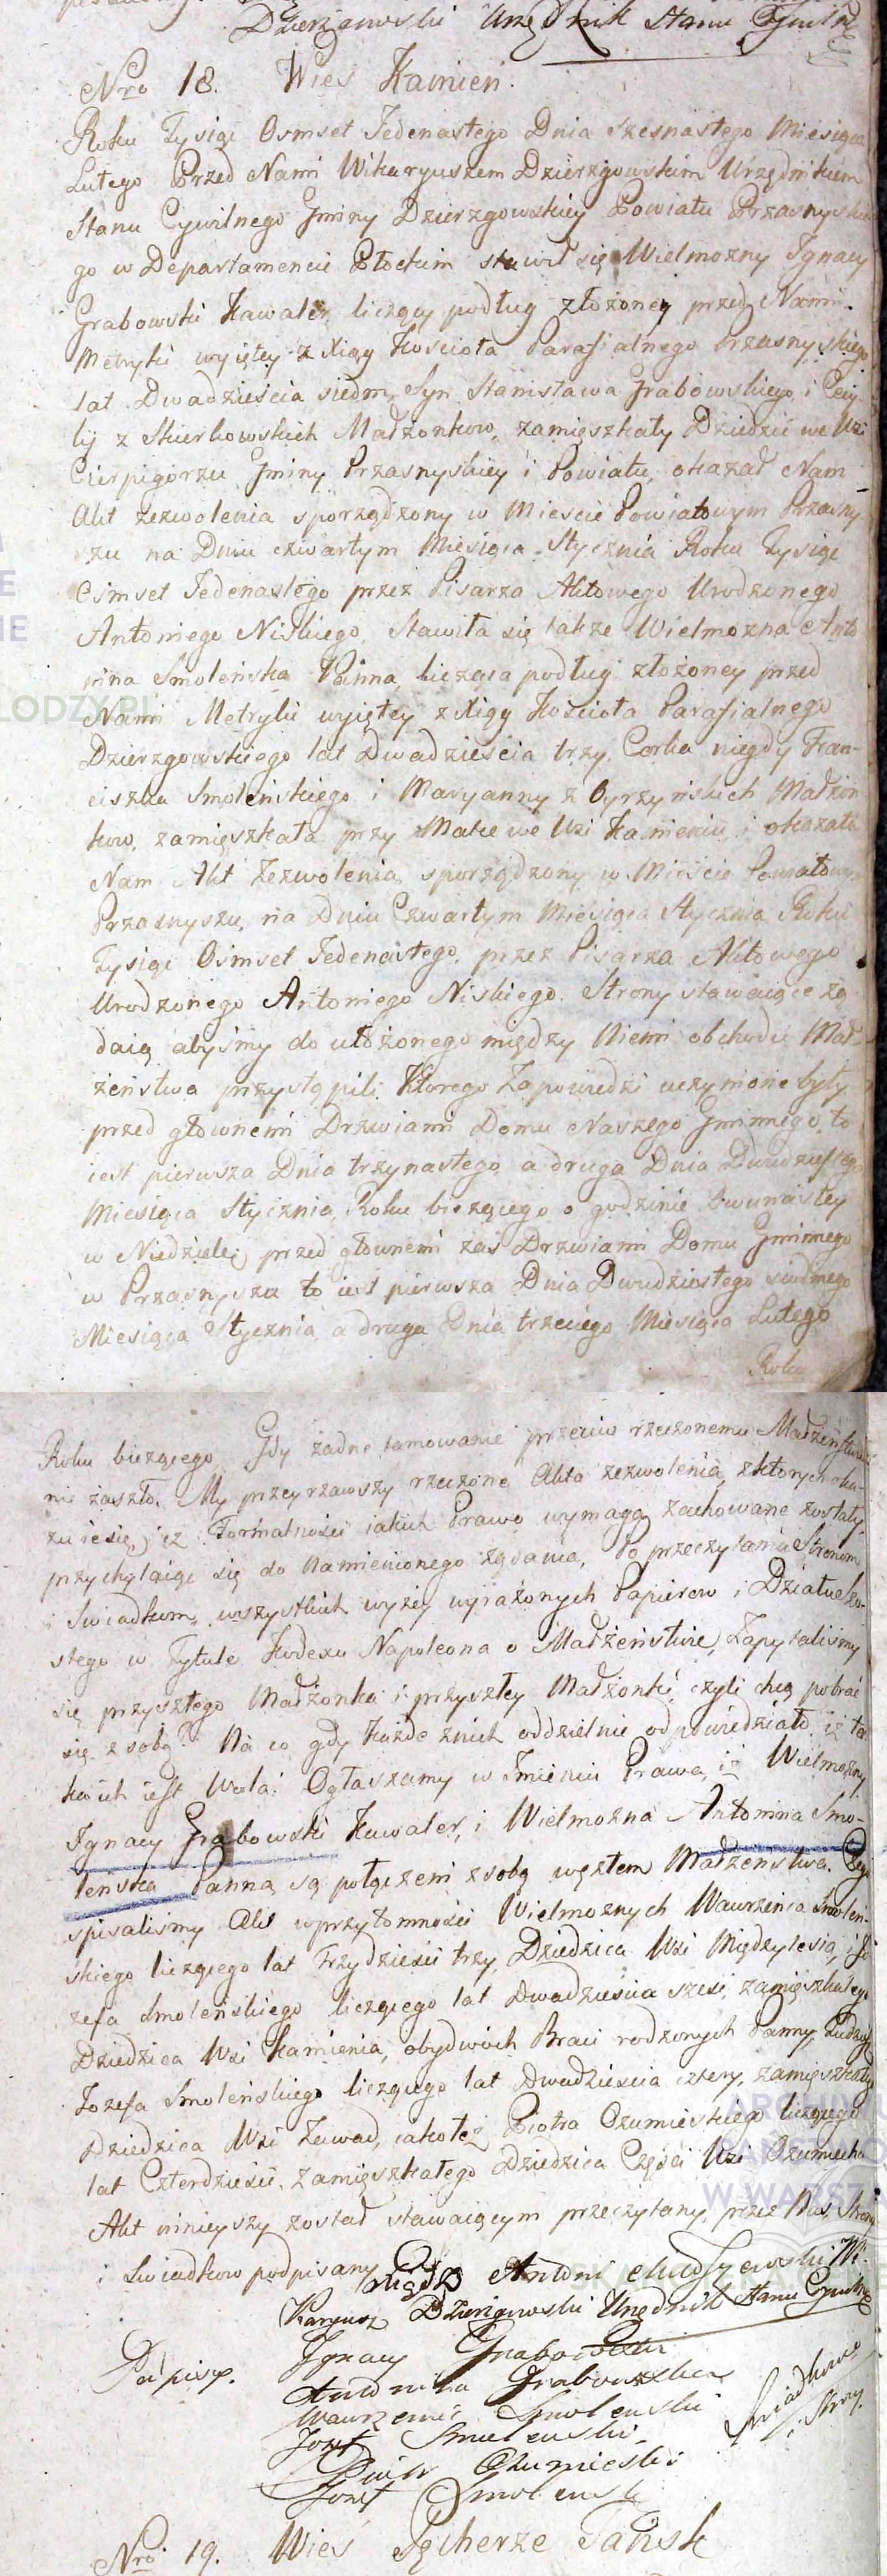 Dzierzgowski Urzędnik Stanu Cywilne
Nro 18. Wies Kamien.
Roku Tysiąc Osmset Jedenastego Dnia szesnastego Miesiąca
Lutego Przed Nami Wikaryuszem Dzierzgowskim Urzędnikiem
Stanu Cywilnego Gminy Dzierzgowskiey Powiatu Przasnyskie
go w Departamencie Płockim stawił się Wielmozny Ignacy
Grabowski Kawaler, liczący podług złożoney przed Nami
Metryki wyiętey z Xiąg Kościoła Parafialnego Przasnyskiego
lat Dwadzieścia siedm, Syn Stanisława Grabowskiego i Cecy
lij z Skierkowskich Małżonkow, zamięszkały Dziedzic we Wsi
Cierpigorzu Gminy Przasnyskiey i Powiatu, okazał Nam
Akt zezwolenia sporządzony w Mieście Powiatowym Przasny
szu na Dniu czwartym Miesiąca Stycznia Roku Tysiąc
Osmset Jedenastego przez Pisarza Aktowego Urodzonego
Antoniego Niskiego, Stawiła się także Wielmożna Anto
nina Smoleńska Panna, licząca podług złożoney przed
Nami Metryki wyiętey z Xiąg Kościoła Parafialnego
Dzierzgowskiego lat Dwadzieścia trzy, Corka niegdy Fran-
ciszka Smoleńskiego i Maryanny z Oyrzyńskich Małżon
kow, zamięszkała przy Matce we Wsi Kamieniu, i okazała
Nam Akt Zezwolenia sporządzony w Mieście Powiatowym
Przasnyszu, na Dniu Czwartym Miesiąca Stycznia Roku
Tysiąc Osmset Jedenastego, przez Pisarza Aktowego
Urodzonego Antoniego Niskiego. Strony stawaiące żą
daią abyśmy do ułożonego między Niemi obchodu Mał-
żeństwa przystąpili, Ktorego Zapowiedzi uczynione były
przed głownemi Drzwiami Domu Naszego Gminnego, to
iest pierwsza Dnia trzynastego, a druga Dnia Dwudziestego
Miesiąca Stycznia, Roku bieżącego o godzinie Dwunastey
w Niedzielę, przed głownemi zaś Drzwiami Domu Gminnego
w Przasnyszu to iest pierwsza Dnia Dwudziestego siodmego
Miesiąca Stycznia, a druga Dnia trzeciego Miesiąca Lutego
Roku
Roku bieżącego. Gdy żadne tamowanie przeciw rzeczonemu Małżeństwu
nie zaszło, My przeyrzawszy rzeczone Akta zezwolenia, z ktorych oka-
zuie się, iż Formalności iakich Prawo wymaga zachowane zostały,
przychylaiąc się do Namienionego żądania, Po przeczytaniu Stronom
i Swiadkom wszystkich wyżey wyrażonych Papierow i Działu Szo-
stego w Tytule Kodexu Napoleona o Małżeństwie, Zapytaliśmy
się przyszłego Małżonka i przyszłey Małżonki, czyli chcą pobrać
się z sobą? Na co gdy każde z nich oddzielnie odpowiedziało, iż ta
ka ich iest Wola: Ogłaszamy w Imieniu Prawa, iż Wielmożny
Ignacy Grabowski Kawaler, i Wielmożna Antonina Smo-
leńska Panna, są połączeni z sobą węzłem Małżeństwa. Czego
spisaliśmy Akt w przytomności Wielmożnych Wawrzeńca Smoleń-
skiego liczącego lat Trzydzieści trzy, Dziedzica Wsi Międzylesia, i Jo
zefa Smoleńskiego liczącego lat Dwadzieścia sześć, zamięszkałego
Dziedzica Wsi Kamienia, obydwoch Braci rodzonych Panny, tudzież
Jozefa Smoleńskiego liczącego lat Dwadzieścia cztery, zamięszkały
Dziedzica Wsi Zawad, iakoteż Piotra Ozumieskiego liczącego
lat Czterdzieści, zamięszkałego Dziedzica Części Wsi Ozumiecha
Akt ninieyszy został stawaiącym przeczytany, przez Nas, Strony
i Swiadkow podpisany
Xiądz Antoni Wi
karyusz Dzierzgowski Urzędnik Stanu Cywilnego
Podpisy. Ignacy Grabowski
Antonina Grabowska
Wawrzeniec Smolenski
Jozef Smolenski
Piotr Ozumieski
Jozef Smolenski
Swiadkowie
i Strony
Nro 19. Wies Pęcherze Tańsk